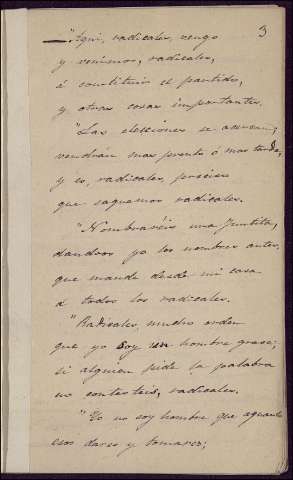 3
—"Aquí, radicales, vengo
y venimos, radicales,
á constituir el partido,
y otras cosas importantes.
"Las elecciones se acercan;
vendrán mas pronto ó mas tarde,
y es, radicales, preciso
que saquemos radicales.
"Nombraréis una Juntita,
dandoos yo los nombres antes,
que mande desde mi casa
á todos los radicales.
"Radicales, mucho orden
que yo soy un hombre grave;
si alguien pide la palabra
no contesteis, radicales.
"Yo no soy hombre que aguante
esos dares y tomares;